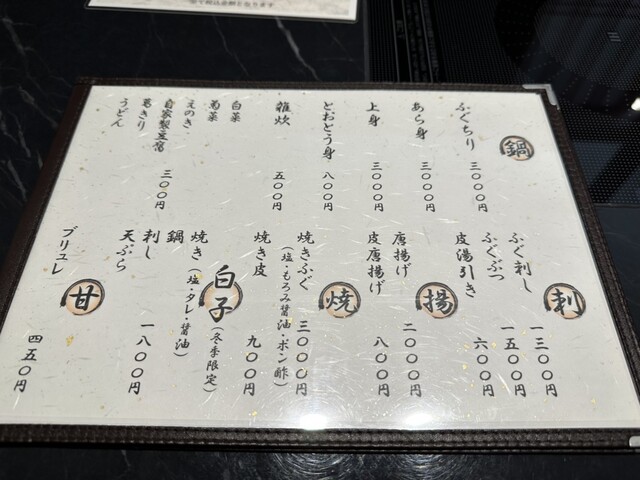 鍋
ふぐちり 三〇〇〇円
あら身 三〇〇〇円
上身 三〇〇〇円
とおとう身 八〇〇円
雑炊 五〇〇円
白菜
菊菜
えのき
自家製豆腐 三〇〇円
葛きり
うどん
刺
ふぐ刺し 一三〇〇円
ふぐぶつ 一五〇〇円
皮湯引き 六〇〇円
揚
唐揚げ 二〇〇〇円
皮唐揚げ 八〇〇円
焼
焼きふぐ 三〇〇〇円
(塩・もろみ醤油・ポン酢)
焼き皮 九〇〇円
白子(冬季限定)
焼き(塩・タレ・醤油)
鍋
刺し 一八〇〇円
天ぷら
甘
ブリュレ 四五〇円